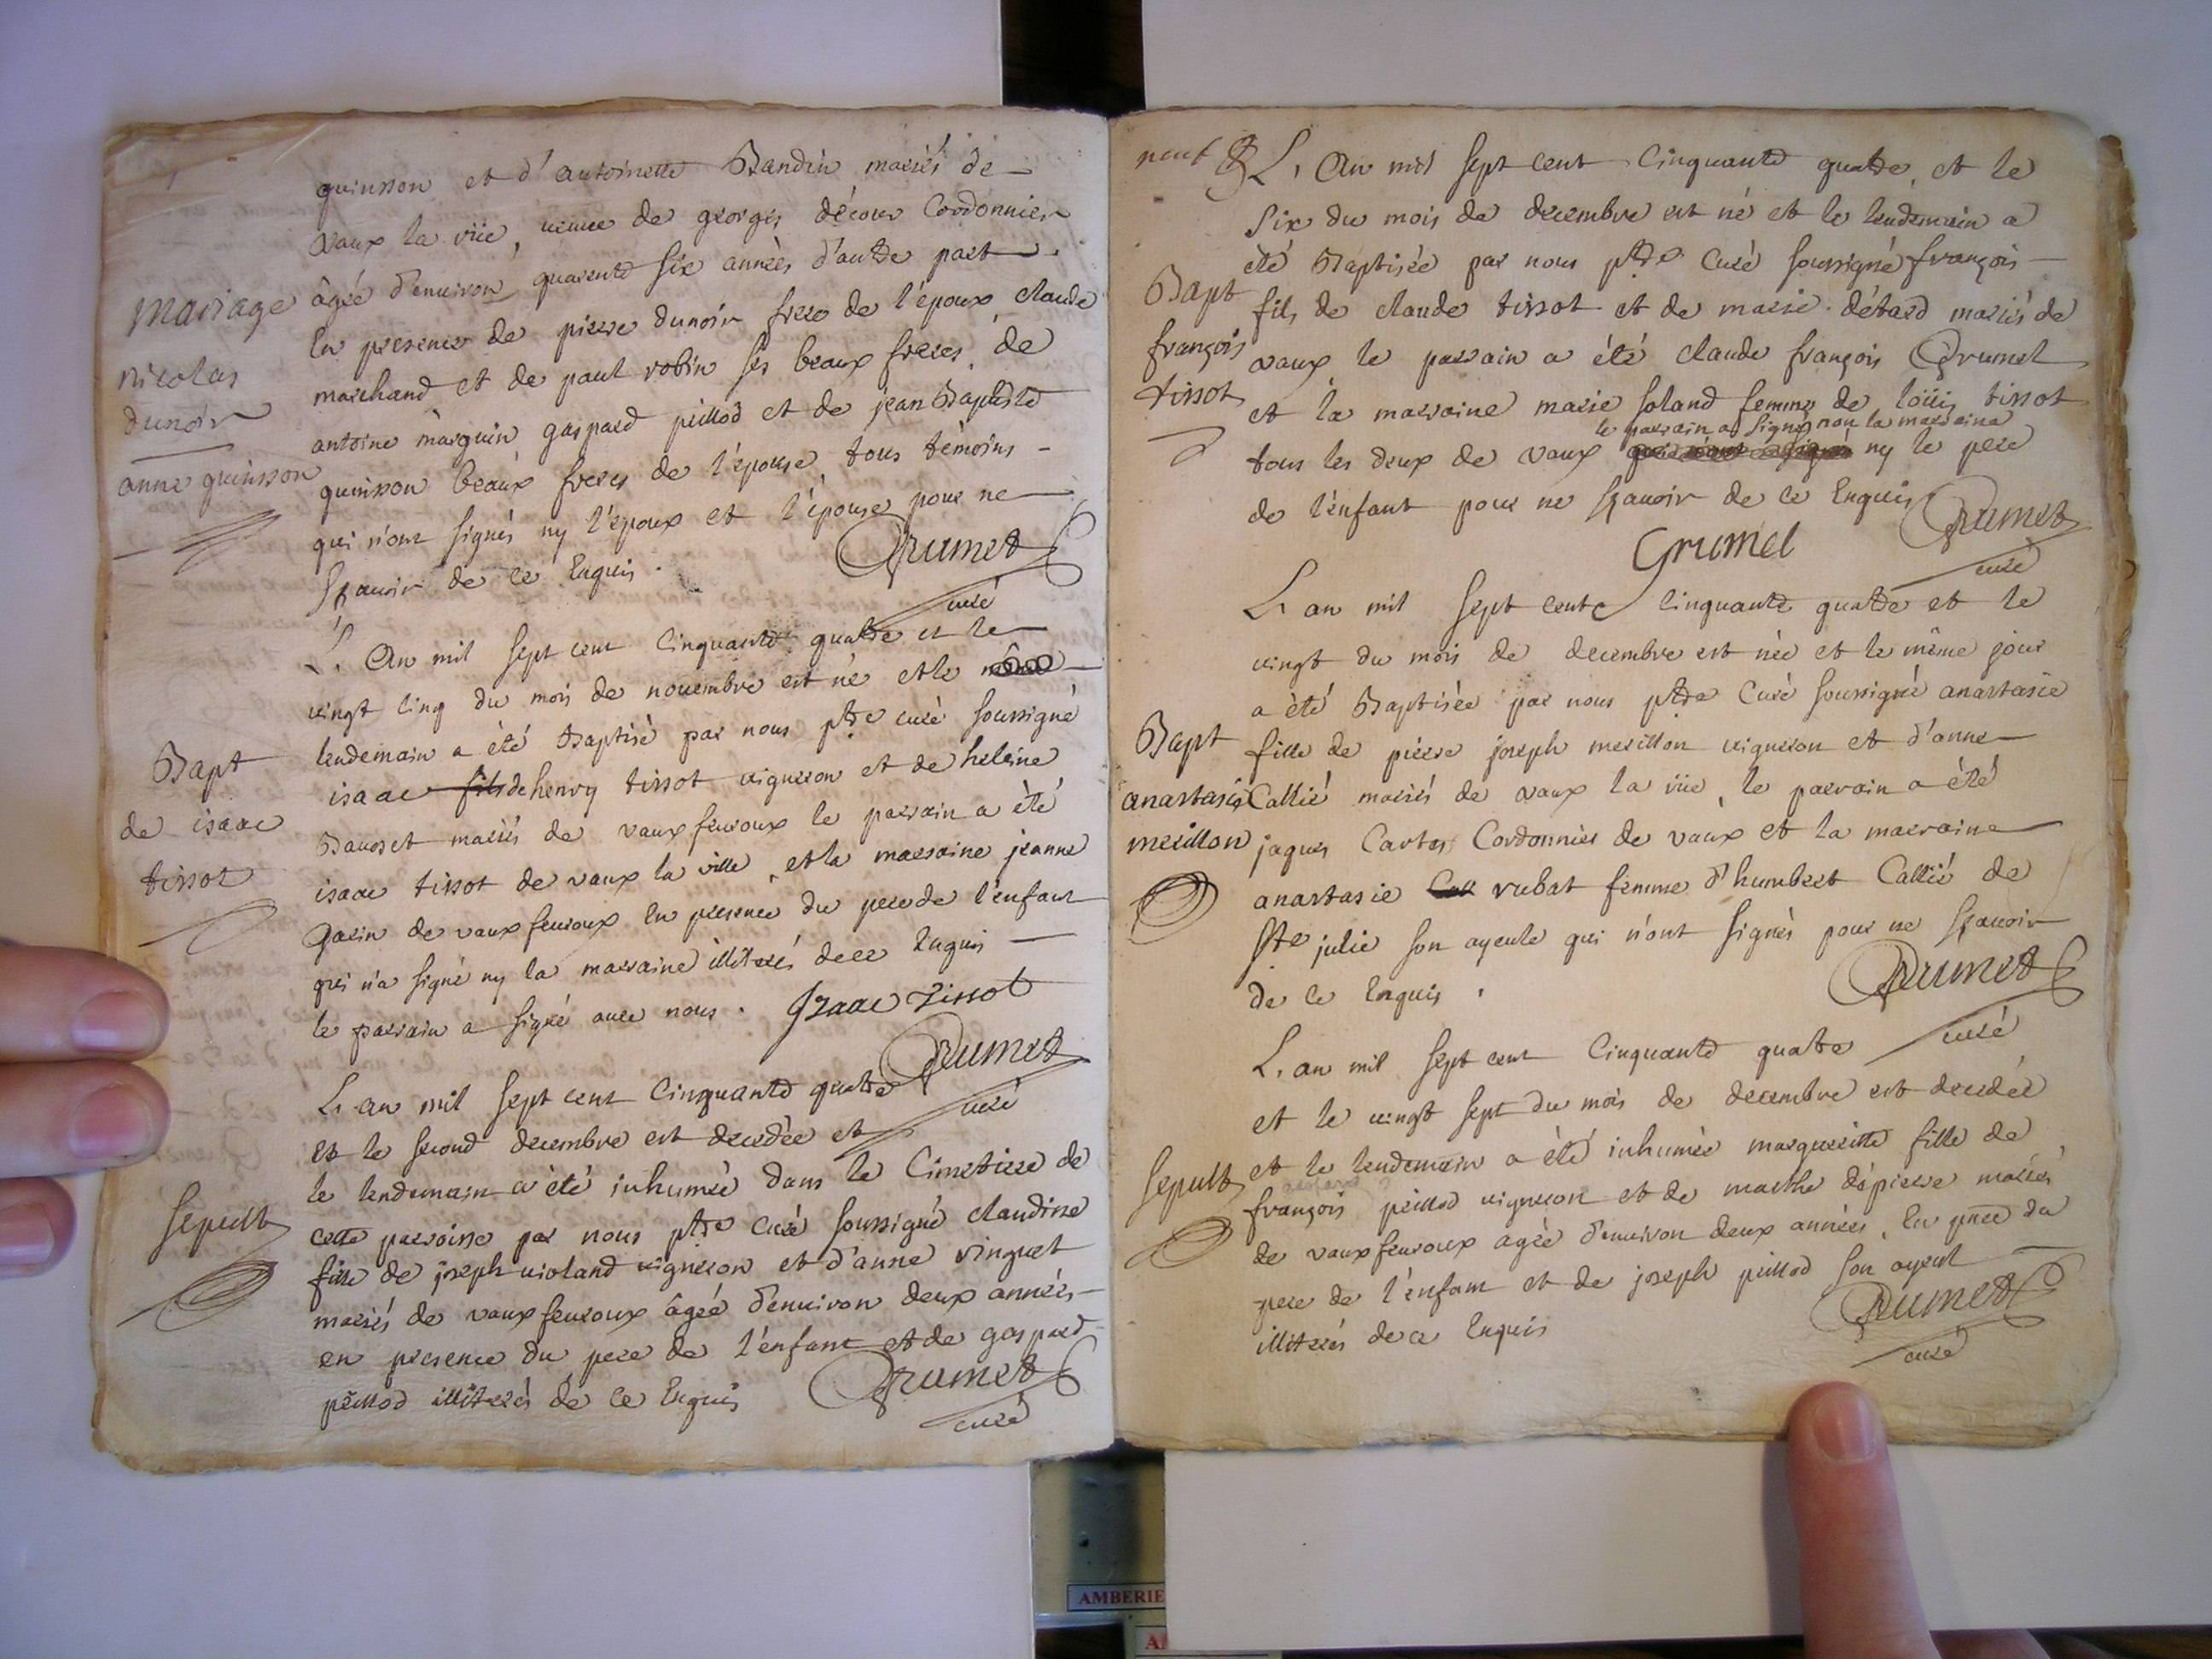 quinson et d'antoinette Bandin mariés de
vaux la viie, veuve de georges décour Cordonnier
âgée d'environ quarente six années d'autre part.
mariage
En presence de pierre dunoir frere de l'époux, claude
marchand et de paul robin ses beaux freres, de
nicolas
dunoir
antoine marguin gaspard peillod et de jean Baptiste
anne quinson
quinson beaux freres de l'épouse, tous témoins
qui n'ont signés ny l'epoux et l'épouse pour ne
sçavoir de ce Enquis.
Grumet
curé
L'An mil sept cent cinquante quatre et le
vingt cinq du mois de novembre est né et le
lendemain a été Baptisé par nous ptre curé soussigné
Bapt
de isaac
tissot
isaac fils de henry tissot vigneron et de heleine
mariés de vaux fevroux le parrain a été
isaac tissot de vaux la ville, et la marraine jeanne
Garin de vaux fevroux En presence du pere de l'enfant
qui n'a signé ny la marraine illiterés de ce Enquis
le parrain a signé avec nous. Izaac Tissot
Grumet
curé
L'an mil sept cent Cinquante quatre
et le second decembre est decedée et
le lendemain a été inhumée dans le Cimetiere de
sepult
cette parroisse par nous ptre Curé soussigné claudine
fille de joseph violand vigneron et d'anne vinguet
mariés de vaux fevroux âgée d'environ deux années
en presence du pere de l'enfant et de gaspard
peillod illiterés de ce Enquis
Grumet
curé
neuf
L'An mil sept cent Cinquante quatre, et le
six du mois de decembre est né et le lendemain a
été Baptisée par nous ptre Curé soussigné françois
Bapt
françois
tissot
fils de claude tissot et de marie détard mariés de
vaux, le parrain a été claude françois Grumel
et la marraine marie soland femme de loüis tissot
le parrain a signé non la marraine
tous les deux de vaux qui n'ont signé ny le pere
de l'enfant pour ne sçavoir de ce Enquis
Grumet
curé
Grumel
L'an mil sept cent cinquante quatre et le
vingt du mois de decembre est née et le même jour
a été Baptisée par nous ptre Curé soussigné anastasie
Bapt
anastasie
merillon
fille de pierre joseph merillon vigneron et d'anne
Callié mariés de vaux la viie, le parrain a été
jaques Cartos Cordonnier de vaux et la marraine
anastasie rubat femme d'humbert Callié de
Ste julie son ayeule qui n'ont signés pour ne sçavoir
de ce Enquis.
Grumet
curé
L'an mil sept cent Cinquante quatre
et le vingt sept du mois de decembre est decedée
sepult
et le lendemain a été inhumée margueritte fille de
françois peillod vigneron et de marthe dépierre mariés
de vaux fevroux agée d'environ deux années, En pnce du
pere de l'enfant et de joseph peillod son ayeul
illiterés de ce Enquis
Grumet
curé
AMBERIE